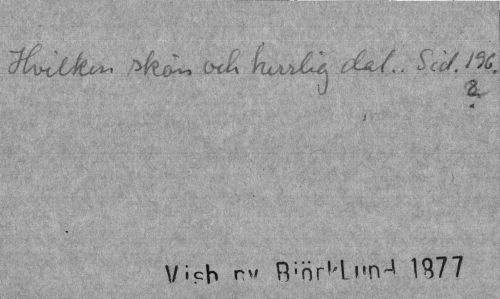 Hvilken skön och herrlig dal.. Sid. 196.
2.
Visb nv BjörkLund 1877